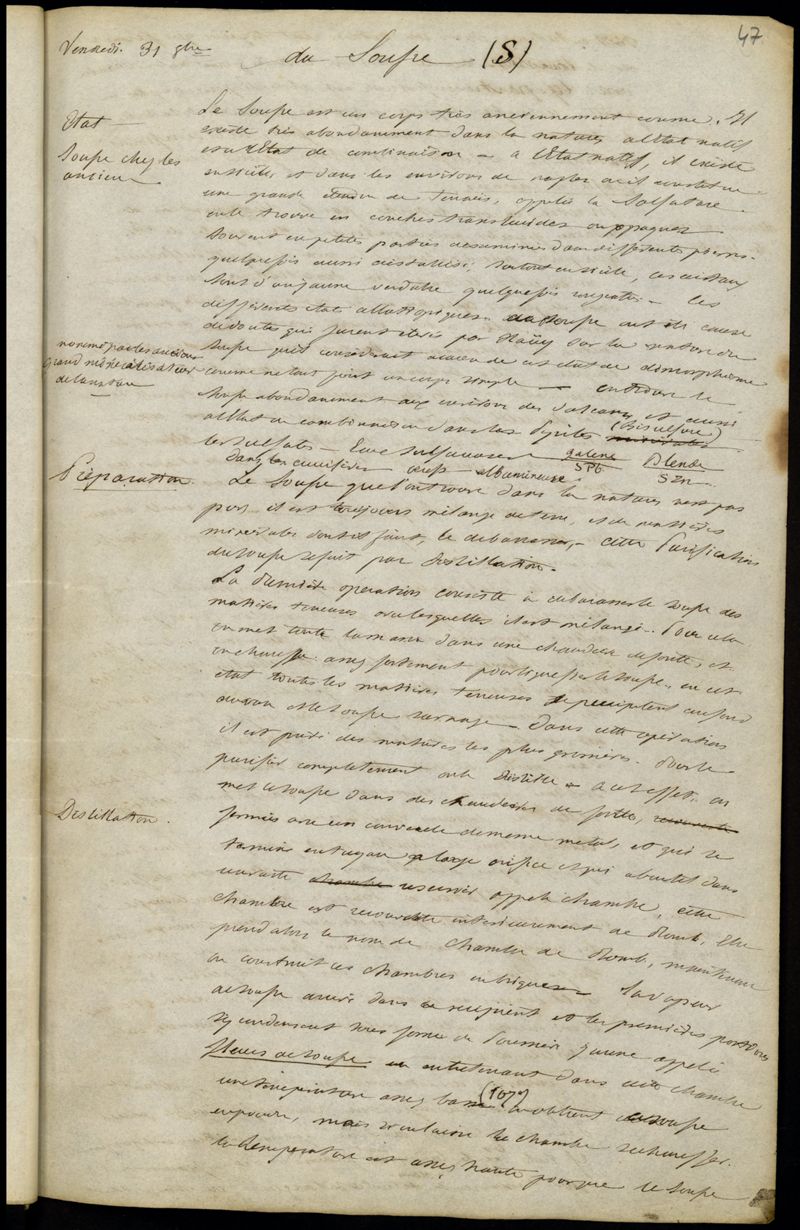 47
Vendredi 31 gbre
du Soufre (S)
Etat
Soufre chez les
anciens
Le Soufre est un corps très anciennement connu. Il
existe très abondamment dans la nature, à l'état natif
et à l'Etat de combinaison – à l'Etat natif, il existe
en sicile, et dans les environs de naples où il constitue
une grande étendue de terrain, appelée la Solfatare
on le trouve en couches translucides ou oppaques
souvent en petites parties disséminées dans différentes pierres.
quelquefois aussi cristallisé; surtout en sicile, ces cristaux
sont d'un jaune verdâtre quelquefois rougeâtre – Ces
différents états allotropiques du soufre ont été cause
de doutes qui furent élevés par Haüy sur la nature du
soufre qu'il considérait à cause de cet état de dimorphisme
comme ne étant point un corps simple – on trouve le
nommé par les anciens
grand minéralisateur
de la nature
soufre abondamment aux environs des volcans et aussi
à l'état de combinaison dans les Pyrites (Bisulfure)
les sulfates – Eaux sulfureuses galène SPb Blende SZn
dans les crucifères œufs – albumineuse.
Préparation.
Le Soufre que l'on trouve dans la nature n'est pas
pur, il est toujours mélangé de terre, et de matières
minérales dont il faut, le débarrasser, – cette Purification
du soufre se fait par distillation.
La première opération consiste à débarrasser le soufre des
matières terreuses avec lesquelles il est mélangé. Pour cela
on met toute la masse dans une chaudière de fonte, et
on chauffe assez fortement pour liquéfier le soufre, en cet
état toutes les matières terreuses se précipitent au fond
du vase et le soufre surnage – Dans cette opération
il est privé des matières les plus grossières. Pour le
purifier complètement on le distille – à cet effet, on
Distillation.
met le soufre dans des chaudières de fonte,
fermées avec un couvercle de même métal, et qui se
termine en tuyau à large orifice et qui aboutit dans
une vaste chambre réservoir appelé chambre, cette
chambre est recouverte intérieurement de Plomb, Elle
prend alors le nom de chambre de Plomb, maintenant
on construit ces chambres en briques – la vapeur
de soufre arrive dans ce récipient et les premières portions
s'y condensent sous forme de Poussière jaune appelée
fleurs de soufre en entretenant dans cette chambre
une température assez basse (107°) on obtient du soufre
en poudre, mais si on laisse la chambre s'échauffer.
la température est assez haute pour que le soufre